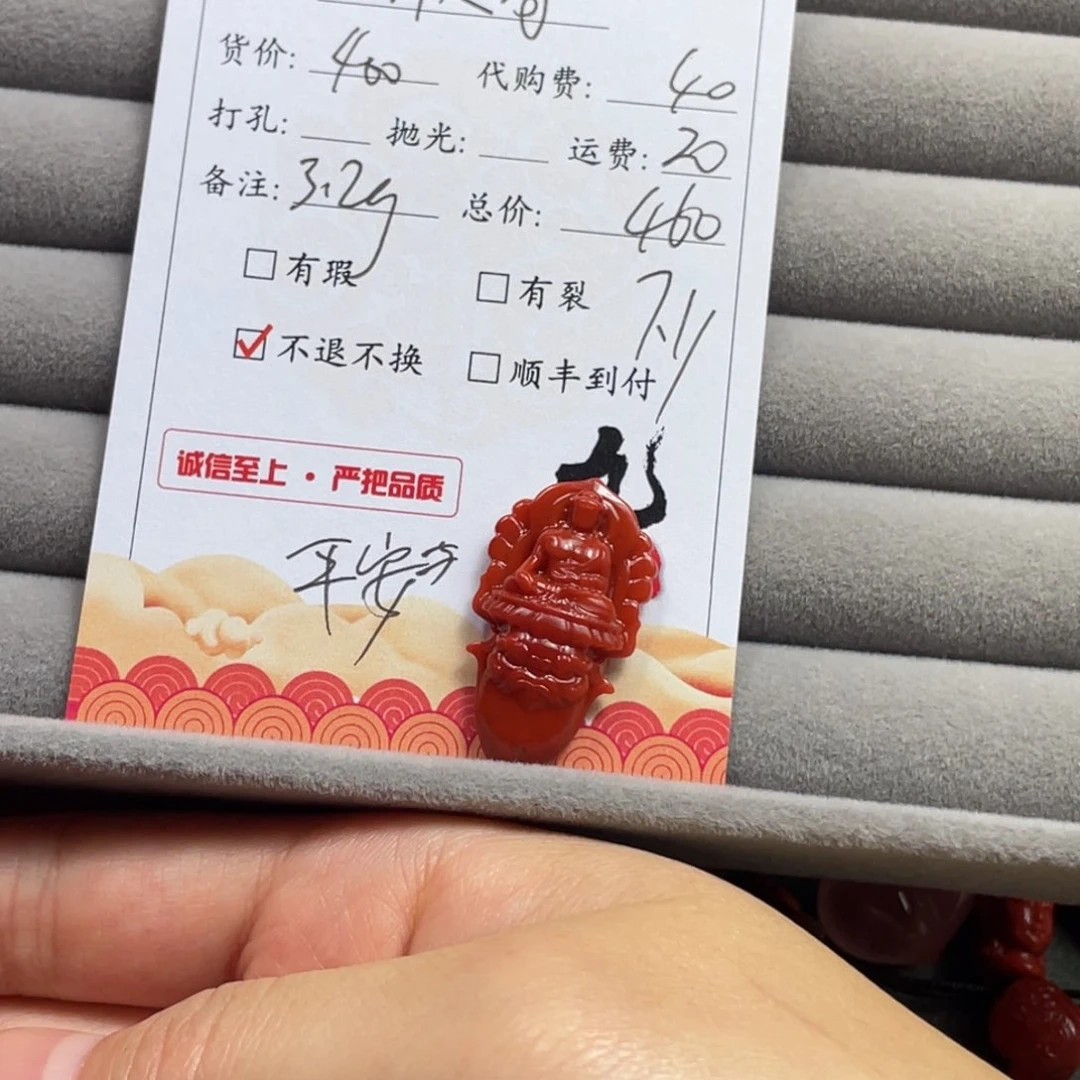 货价: 400 代购费: 40
打孔: 抛光: 运费: 20
备注: 3.2g 总价: 460
有瑕 有裂 7.11
不退不换 顺丰到付
诚信至上 · 严把品质
平安寺